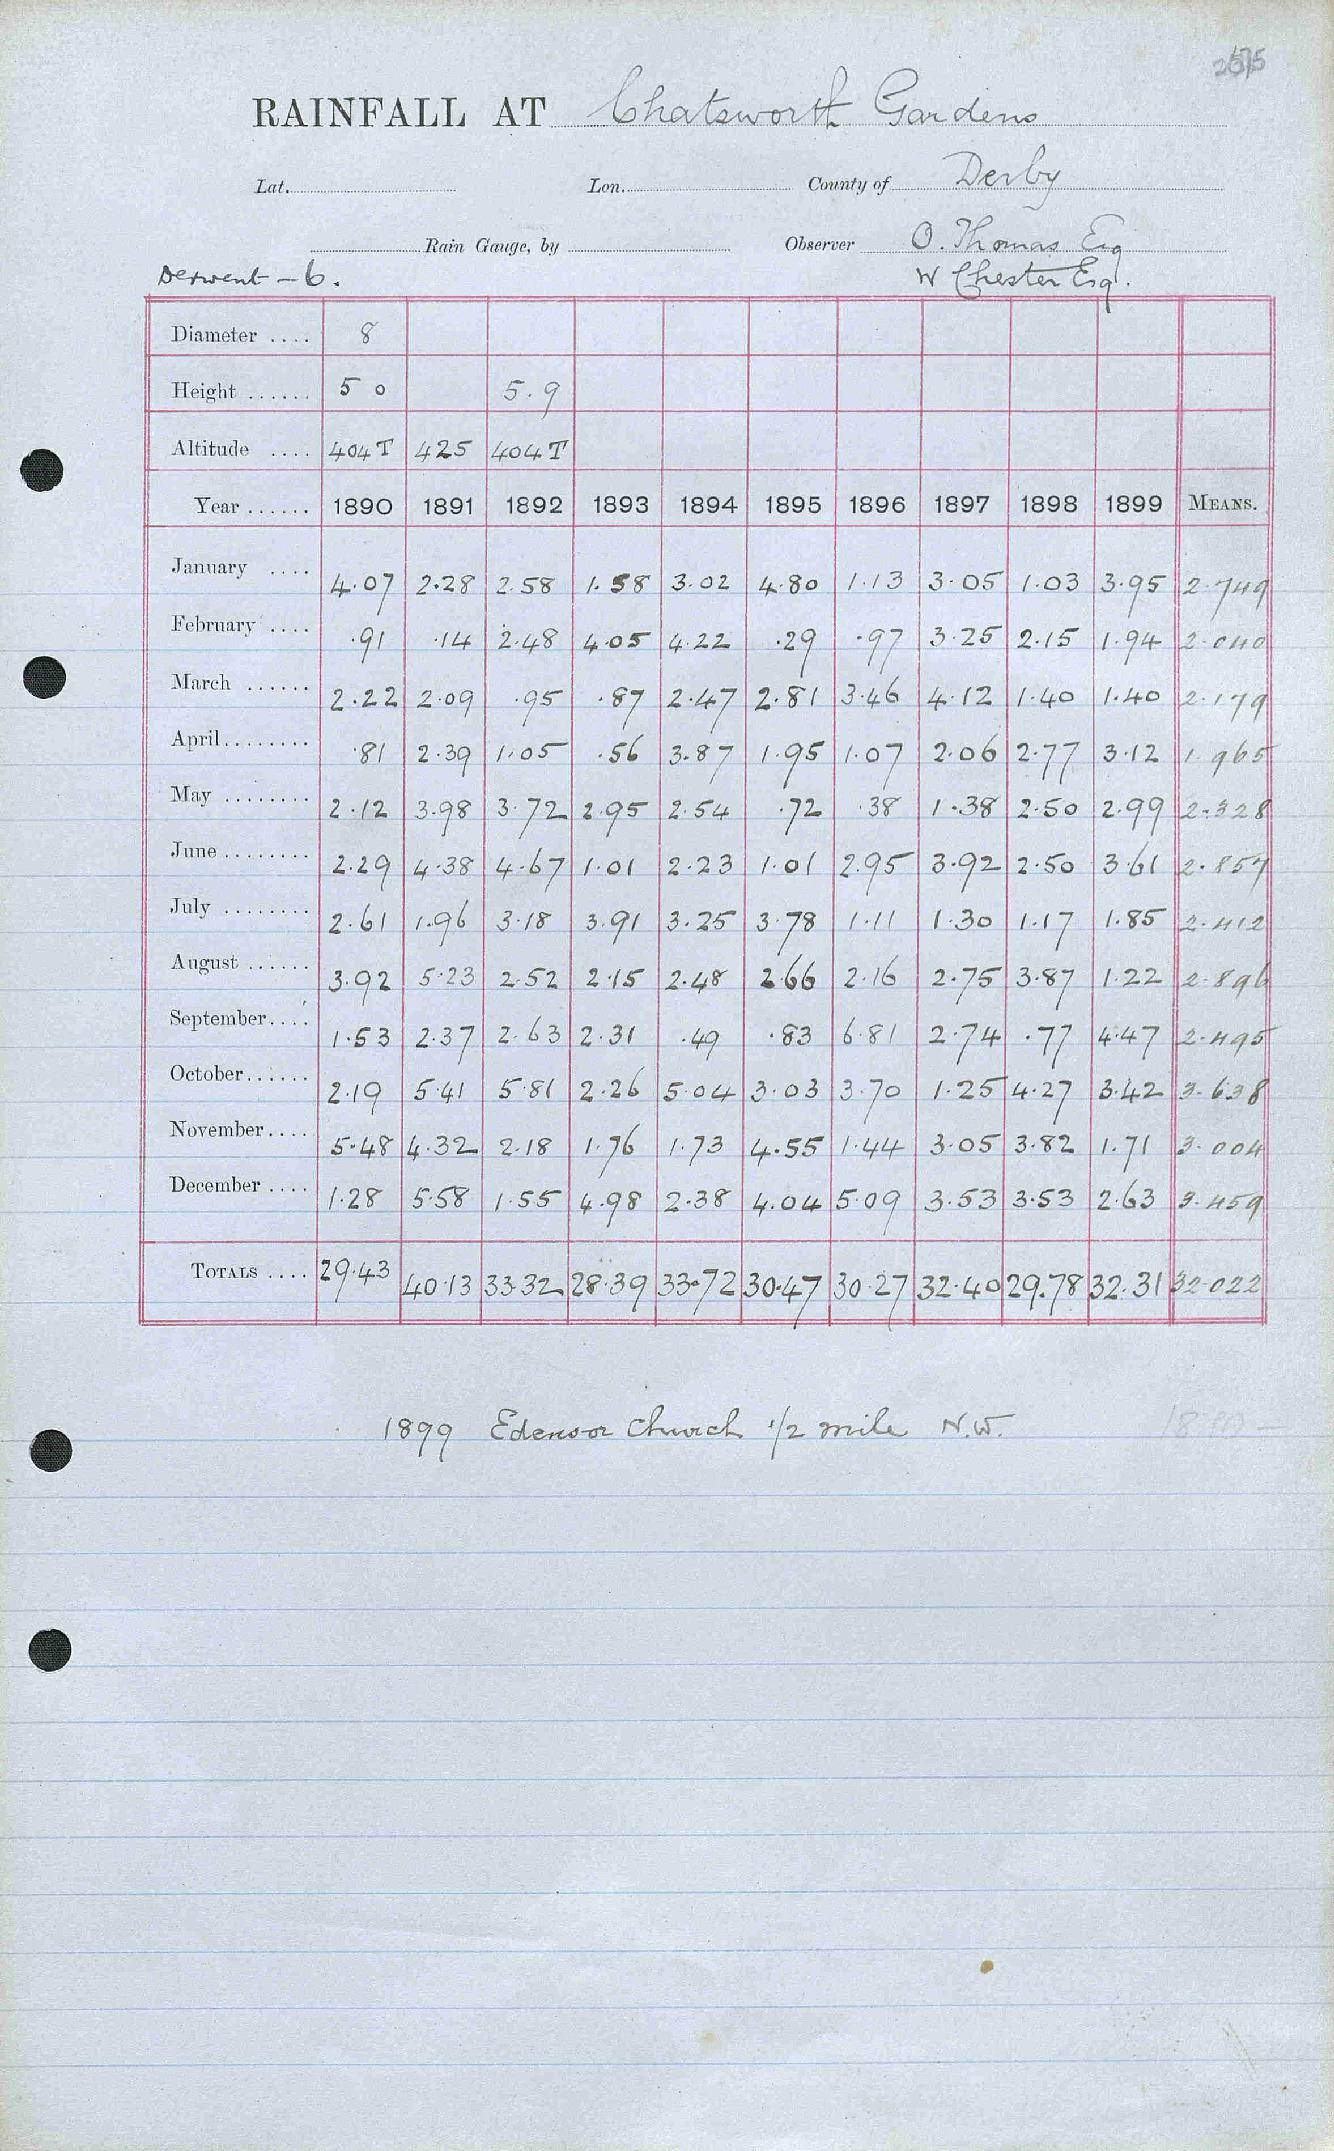 RAINFALL AT Chatsworth Gardens
Lat. Lon. County of Derby
Rain Gauge, by Observer O. Thomas Esq
Derwent - 6. W Chester Esq.
Diameter .... 8
Height ...... 5 0 5.9
Altitude .... 404T 425 404T
Year ...... 1890 1891 1892 1893 1894 1895 1896 1897 1898 1899 MEANS.
January .... 4.07 2.28 2.58 1.58 3.02 4.80 1.13 3.05 1.03 3.95 2.749
February .... .91 .14 2.48 4.05 4.22 .29 .97 3.25 2.15 1.94 2.040
March ...... 2.22 2.09 .95 .87 2.47 2.81 3.46 4.12 1.40 1.40 2.179
April........ .81 2.39 1.05 .56 3.87 1.95 1.07 2.06 2.77 3.12 1.965
May ........ 2.12 3.98 3.72 2.95 2.54 .72 .38 1.38 2.50 2.99 2.328
June ........ 2.29 4.38 4.67 1.01 2.23 1.01 2.95 3.92 2.50 3.61 2.857
July ........ 2.61 1.96 3.18 3.91 3.25 3.78 1.11 1.30 1.17 1.85 2.412
August ...... 3.92 5.23 2.52 2.15 2.48 2.66 2.16 2.75 3.87 1.22 2.896
September.... 1.53 2.37 2.63 2.31 .49 .83 6.81 2.74 .77 4.47 2.495
October...... 2.19 5.41 5.81 2.26 5.04 3.03 3.70 1.25 4.27 3.42 3.638
November.... 5.48 4.32 2.18 1.76 1.73 4.55 1.44 3.05 3.82 1.71 3.004
December .... 1.28 5.58 1.55 4.98 2.38 4.04 5.09 3.53 3.53 2.63 3.459
TOTALS .... 29.43 40.13 33.32 28.39 33.72 30.47 30.27 32.40 29.78 32.31 32.022
1899 Edensor Church 1/2 mile N.W.